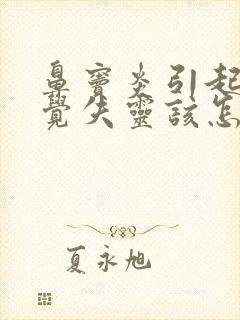 鼻窦炎引起
觉失灵该怎
夏永旭